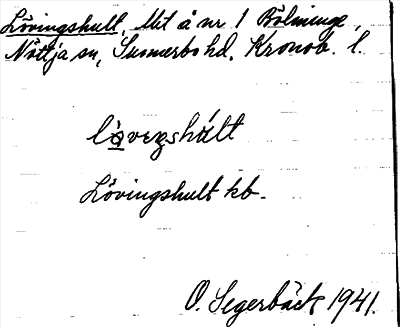 Lövingshult, Mt å nr 1 Bölminge,
Nöttja sn, Sunnerbo hd, Kronob. l.
Lövingshult kb.
O. Segerbäck 1941.